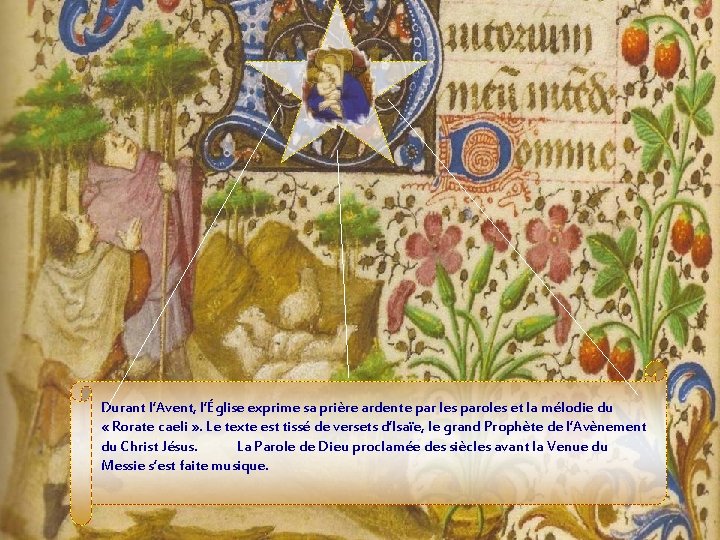 autorium
meū intēde
Domine
Durant l’Avent, l’Église exprime sa prière ardente par les paroles et la mélodie du
« Rorate caeli ». Le texte est tissé de versets d’Isaïe, le grand Prophète de l’Avènement
du Christ Jésus. La Parole de Dieu proclamée des siècles avant la Venue du
Messie s’est faite musique.